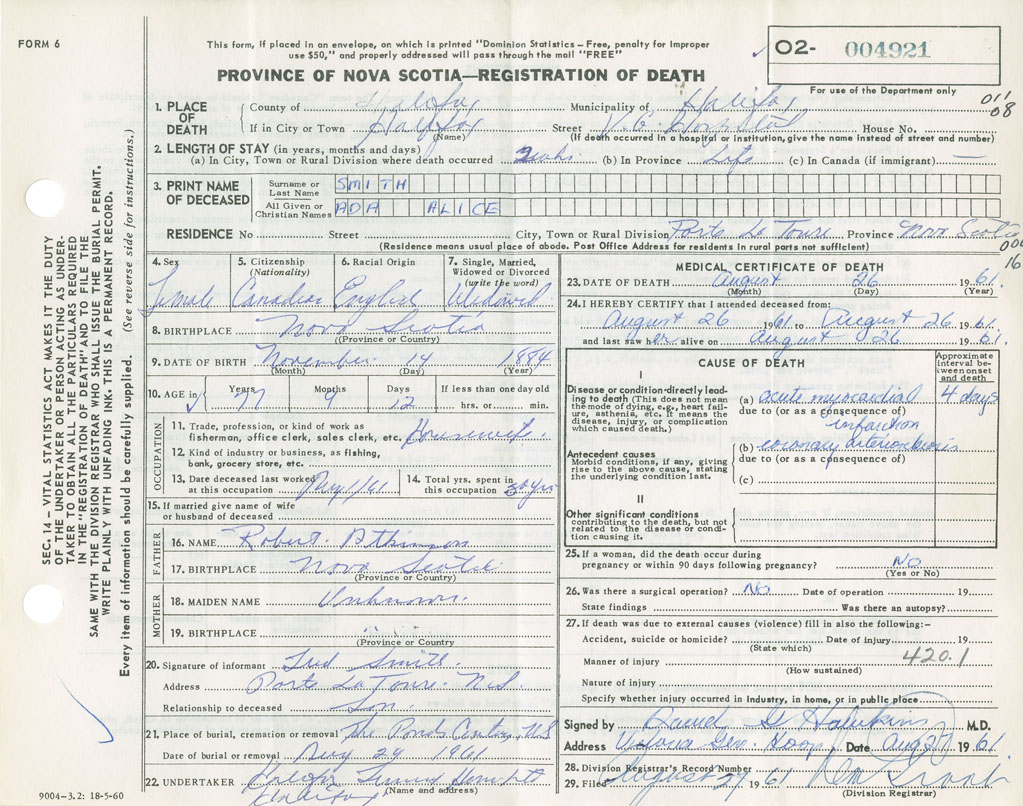 FORM 6
This form, if placed in an envelope, on which is printed "Dominion Statistics – Free, penalty for improper
use $50," and properly addressed will pass through the mail "FREE"
PROVINCE OF NOVA SCOTIA—REGISTRATION OF DEATH
O2- 004921
For use of the Department only
011
08
1. PLACE OF DEATH
County of Halifax Municipality of Halifax
If in City or Town Halifax Street V.G. Hospital House No.
(Name) (If death occurred in a hospital or institution, give the name instead of street and number)
2. LENGTH OF STAY (in years, months and days)
(a) In City, Town or Rural Division where death occurred (b) In Province Life (c) In Canada (if immigrant) —
3. PRINT NAME OF DECEASED
Surname or Last Name SMITH
All Given or Christian Names ADA ALICE
RESIDENCE No Street City, Town or Rural Division Ports La Tour Province Nova Scotia
(Residence means usual place of abode. Post Office Address for residents in rural parts not sufficient)
16
4. Sex Female
5. Citizenship (Nationality) Canadian
6. Racial Origin English
7. Single, Married, Widowed or Divorced (write the word) Widowed
8. BIRTHPLACE Nova Scotia
(Province or Country)
9. DATE OF BIRTH November 14 1884
(Month) (Day) (Year)
10. AGE in Years Months Days If less than one day old
77 9 12 hrs. or min.
OCCUPATION
11. Trade, profession, or kind of work as
fisherman, office clerk, sales clerk, etc. Housewife
12. Kind of industry or business, as fishing,
bank, grocery store, etc.
13. Date deceased last worked at this occupation /61
14. Total yrs. spent in this occupation yrs
15. If married give name of wife
or husband of deceased
FATHER
16. NAME Robert Atkinson
17. BIRTHPLACE Nova Scotia
(Province or Country)
MOTHER
18. MAIDEN NAME Unknown
19. BIRTHPLACE
(Province or Country)
20. Signature of informant Smith
Address Ports La Tour N.S.
Relationship to deceased Son
21. Place of burial, cremation or removal The N.S
Date of burial or removal Aug 29 1961
22. UNDERTAKER
(Name and address)
Halifax
MEDICAL CERTIFICATE OF DEATH
23. DATE OF DEATH August 26 1961
(Month) (Day) (Year)
24. I HEREBY CERTIFY that I attended deceased from:
August 26 1961 to August 26 1961
and last saw her alive on August 26 1961
CAUSE OF DEATH
Approximate interval between onset and death
I
Disease or condition directly lead-
ing to death (This does not mean
the mode of dying, e.g., heart fail-
ure, asthenia, etc. It means the
disease, injury, or complication
which caused death.)
(a) acute myocardial 4 days
due to (or as a consequence of)
infarction
Antecedent causes
Morbid conditions, if any, giving
rise to the above cause, stating
the underlying condition last.
(b) coronary arteriosclerosis
due to (or as a consequence of)
(c)
II
Other significant conditions
contributing to the death, but not
related to the disease or condi-
tion causing it.
25. If a woman, did the death occur during
pregnancy or within 90 days following pregnancy? NO
(Yes or No)
26. Was there a surgical operation? NO Date of operation 19
State findings Was there an autopsy?
27. If death was due to external causes (violence) fill in also the following:–
Accident, suicide or homicide? Date of injury 19
(State which)
420.1
Manner of injury
(How sustained)
Nature of injury
Specify whether injury occurred in industry, in home, or in public place
Signed by M.D.
Address Victoria Gen. Hosp. Date Aug 27 1961
28. Division Registrar's Record Number
29. Filed August 29 1961
(Division Registrar)
SEC. 14 – VITAL STATISTICS ACT MAKES IT THE DUTY
OF THE UNDERTAKER OR PERSON ACTING AS UNDER-
TAKER TO OBTAIN ALL THE PARTICULARS REQUIRED
IN THE "REGISTRATION OF DEATH" AND TO FILE THE
SAME WITH THE DIVISION REGISTRAR WHO SHALL ISSUE THE BURIAL PERMIT.
WRITE PLAINLY WITH UNFADING INK. THIS IS A PERMANENT RECORD.
Every item of information should be carefully supplied. (See reverse side for instructions.)
9004–3.2: 18-5-60